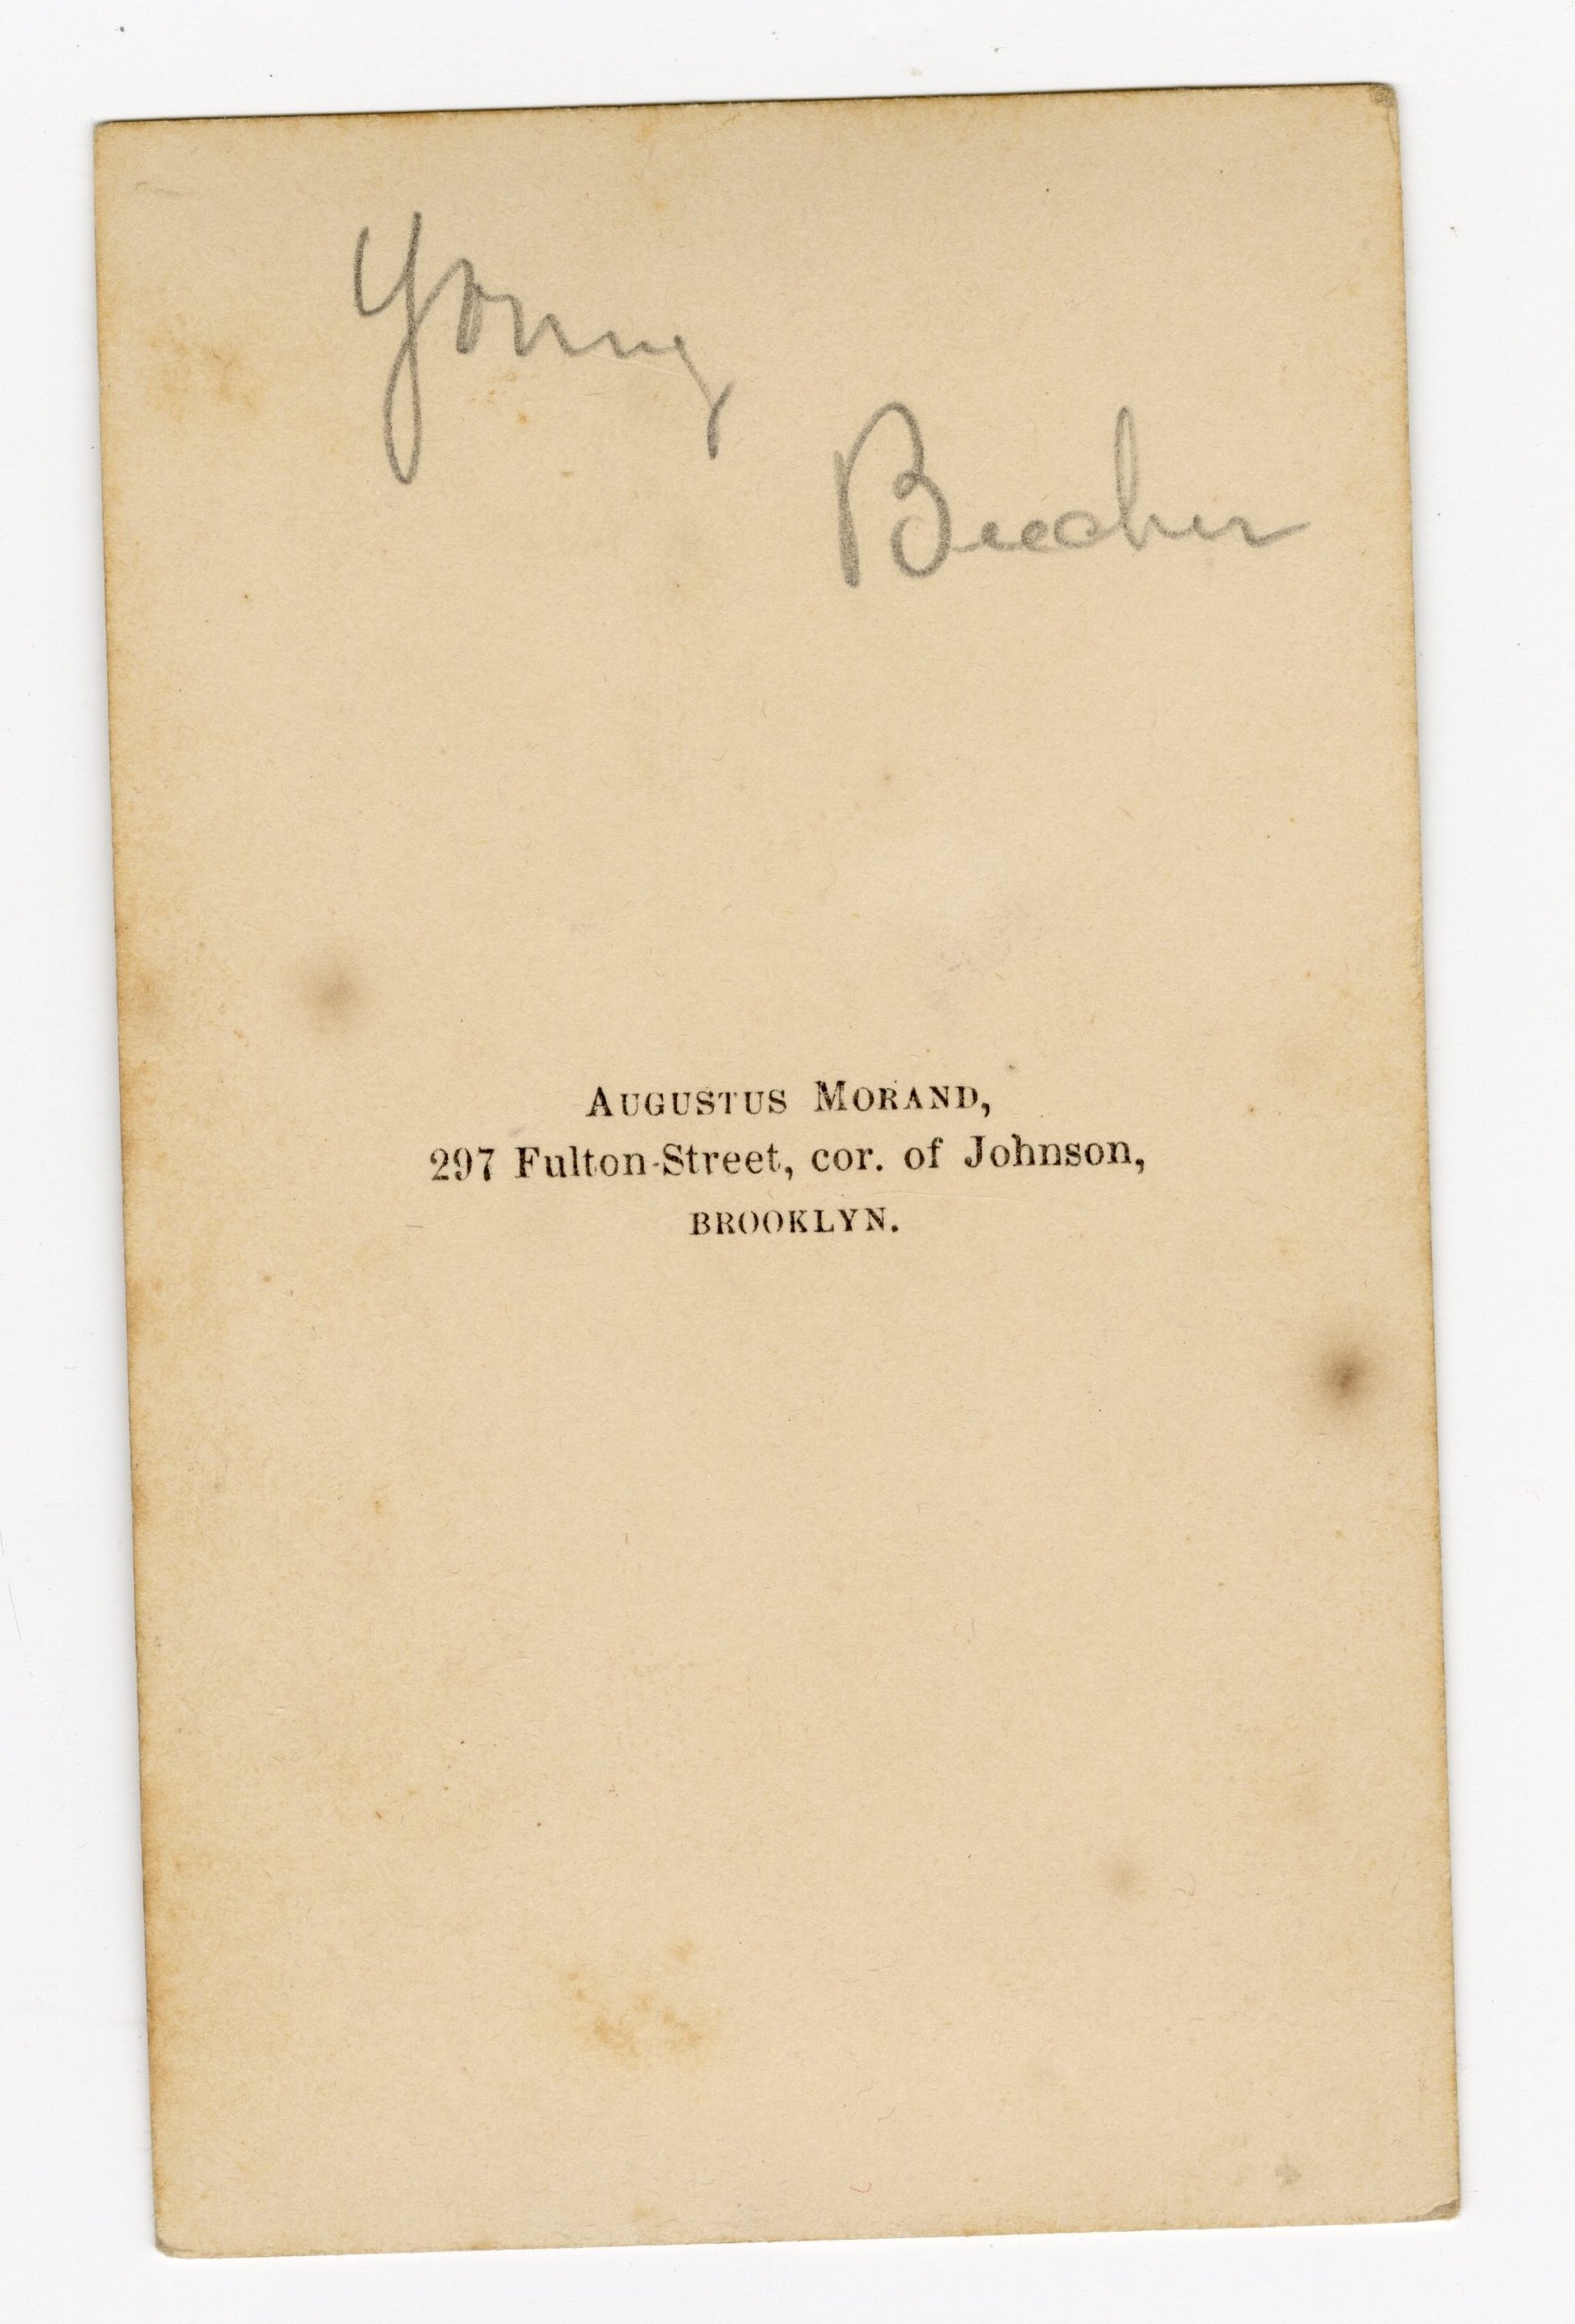 Young
Beecher
AUGUSTUS MORAND,
297 Fulton-Street, cor. of Johnson,
BROOKLYN.